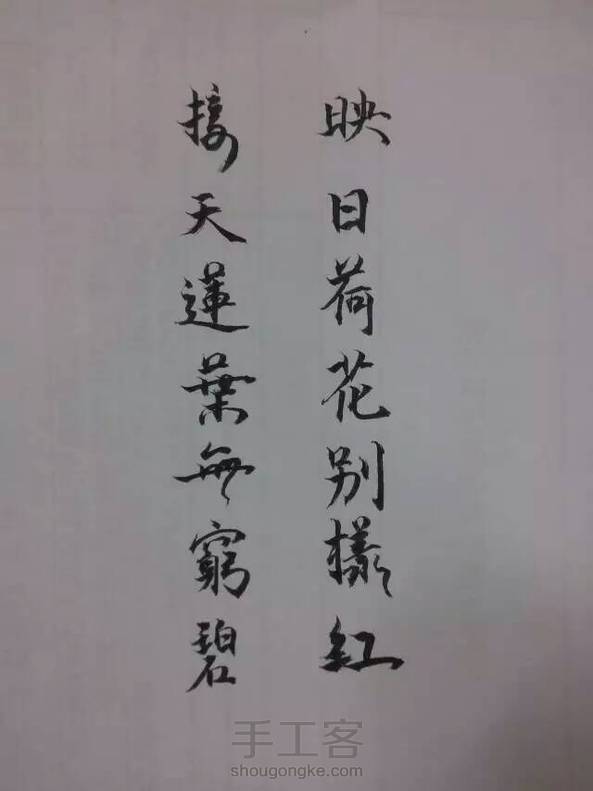 映日荷花别樣紅
接天蓮葉無窮碧
手工客
shougongke.com